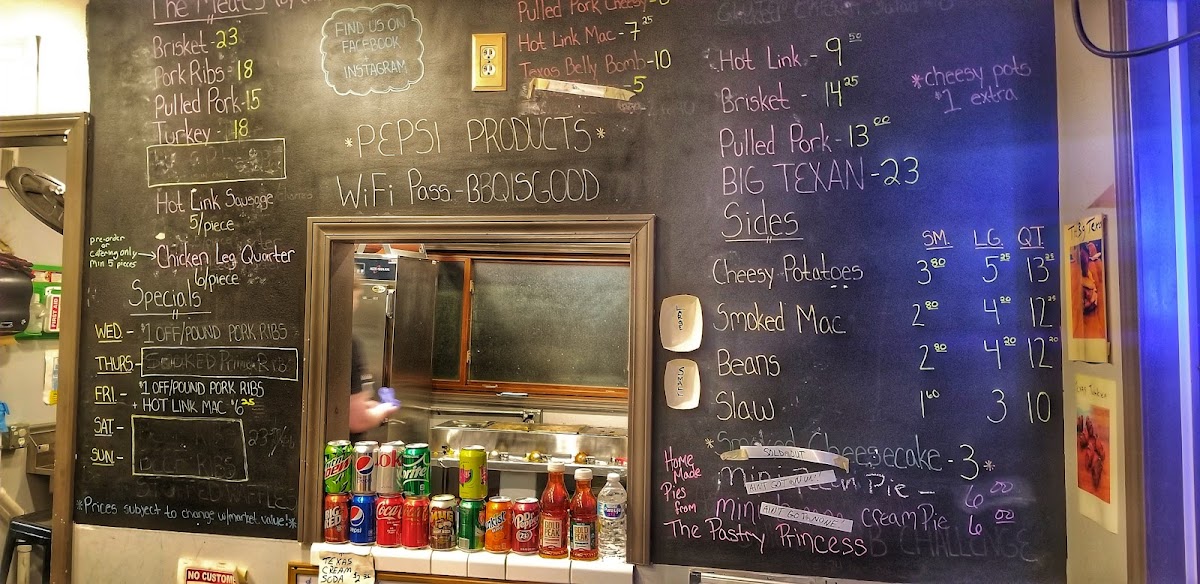 The Meats
Brisket - 23
Pork Ribs - 18
Pulled Pork - 15
Turkey - 18
Hot Link Sausage
5/piece
pre-order
or
catering only
min 5 pieces
Chicken Leg Quarter
6/piece
Specials
WED - $1 OFF/POUND PORK RIBS
THURS - SMOKED Prime Rib
FRI - $1 OFF/POUND PORK RIBS
+ HOT LINK MAC $6.25
SAT -
SUN -
*Prices subject to change w/market value!*
FIND US ON
FACEBOOK
+
INSTAGRAM
Pulled Pork Cheesy - 8
Hot Link Mac - 7.25
Texas Belly Bomb - 10
5
*PEPSI PRODUCTS*
WiFi Pass - BBQISGOOD
Hot Link - 9.50
Brisket - 14.25
Pulled Pork - 13.00
BIG TEXAN - 23
*cheesy pots
$1 extra
Sides
SM. LG. QT
Cheesy Potatoes 3.80 5.25 13.25
Smoked Mac 2.80 4.20 12.25
Beans 2.80 4.20 12.20
Slaw 1.60 3 10
*Smoked Cheesecake - 3*
SOLD OUT
Home
Made
Pies
from
The Pastry Princess
Mini Pie - 6.00
AIN'T GOT NONE
mini cream Pie 6.00
AIN'T GOT NONE
CHALLENGE
LARGE
SMALL
FIRST AID
Mtn Dew
pepsi
Sprite
BIG RED
pepsi
Coca-Cola
Sunkist
Dr Pepper
GOLD PEAK
GOLD PEAK
TEXAS
CREAM
SODA
NO CUSTOME